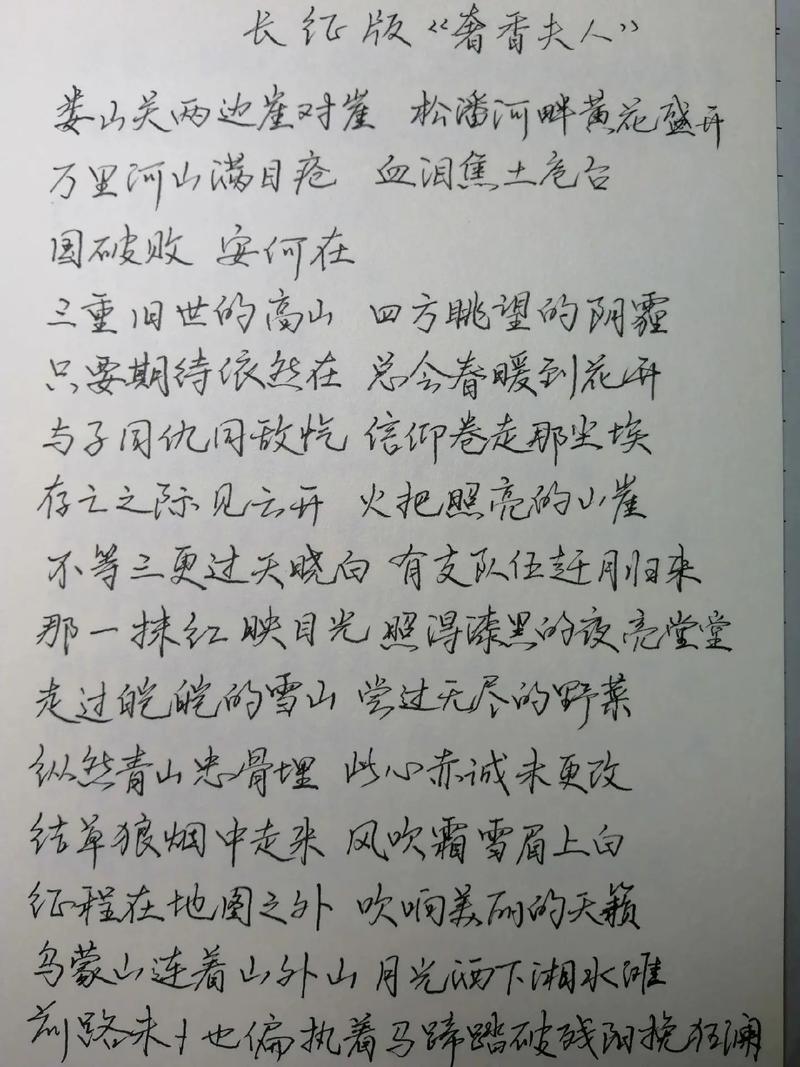 长征版《奢香夫人》
娄山关两边崖对崖 松潘河畔黄花盛开
万里河山满目疮 血泪焦土危台
国破败 安何在
三重旧世的高山 四方眺望的阴霾
只要期待依然在 总会春暖到花开
与子同仇同敌忾 信仰卷走那尘埃
存亡之际见云开 火把照亮的山崖
不等三更过天晓白 有支队伍赶月归来
那一抹红映目光 照得漆黑的夜亮堂堂
走过皑皑的雪山 尝过无尽的野菜
纵然青山忠骨埋 此心赤诚未更改
结草狼烟中走来 风吹霜雪眉上白
征程在地图之外 吹响美丽的天籁
乌蒙山连着山外山 月光洒下湘水滩
前路未卜也偏执着马蹄踏破残阳挽狂澜